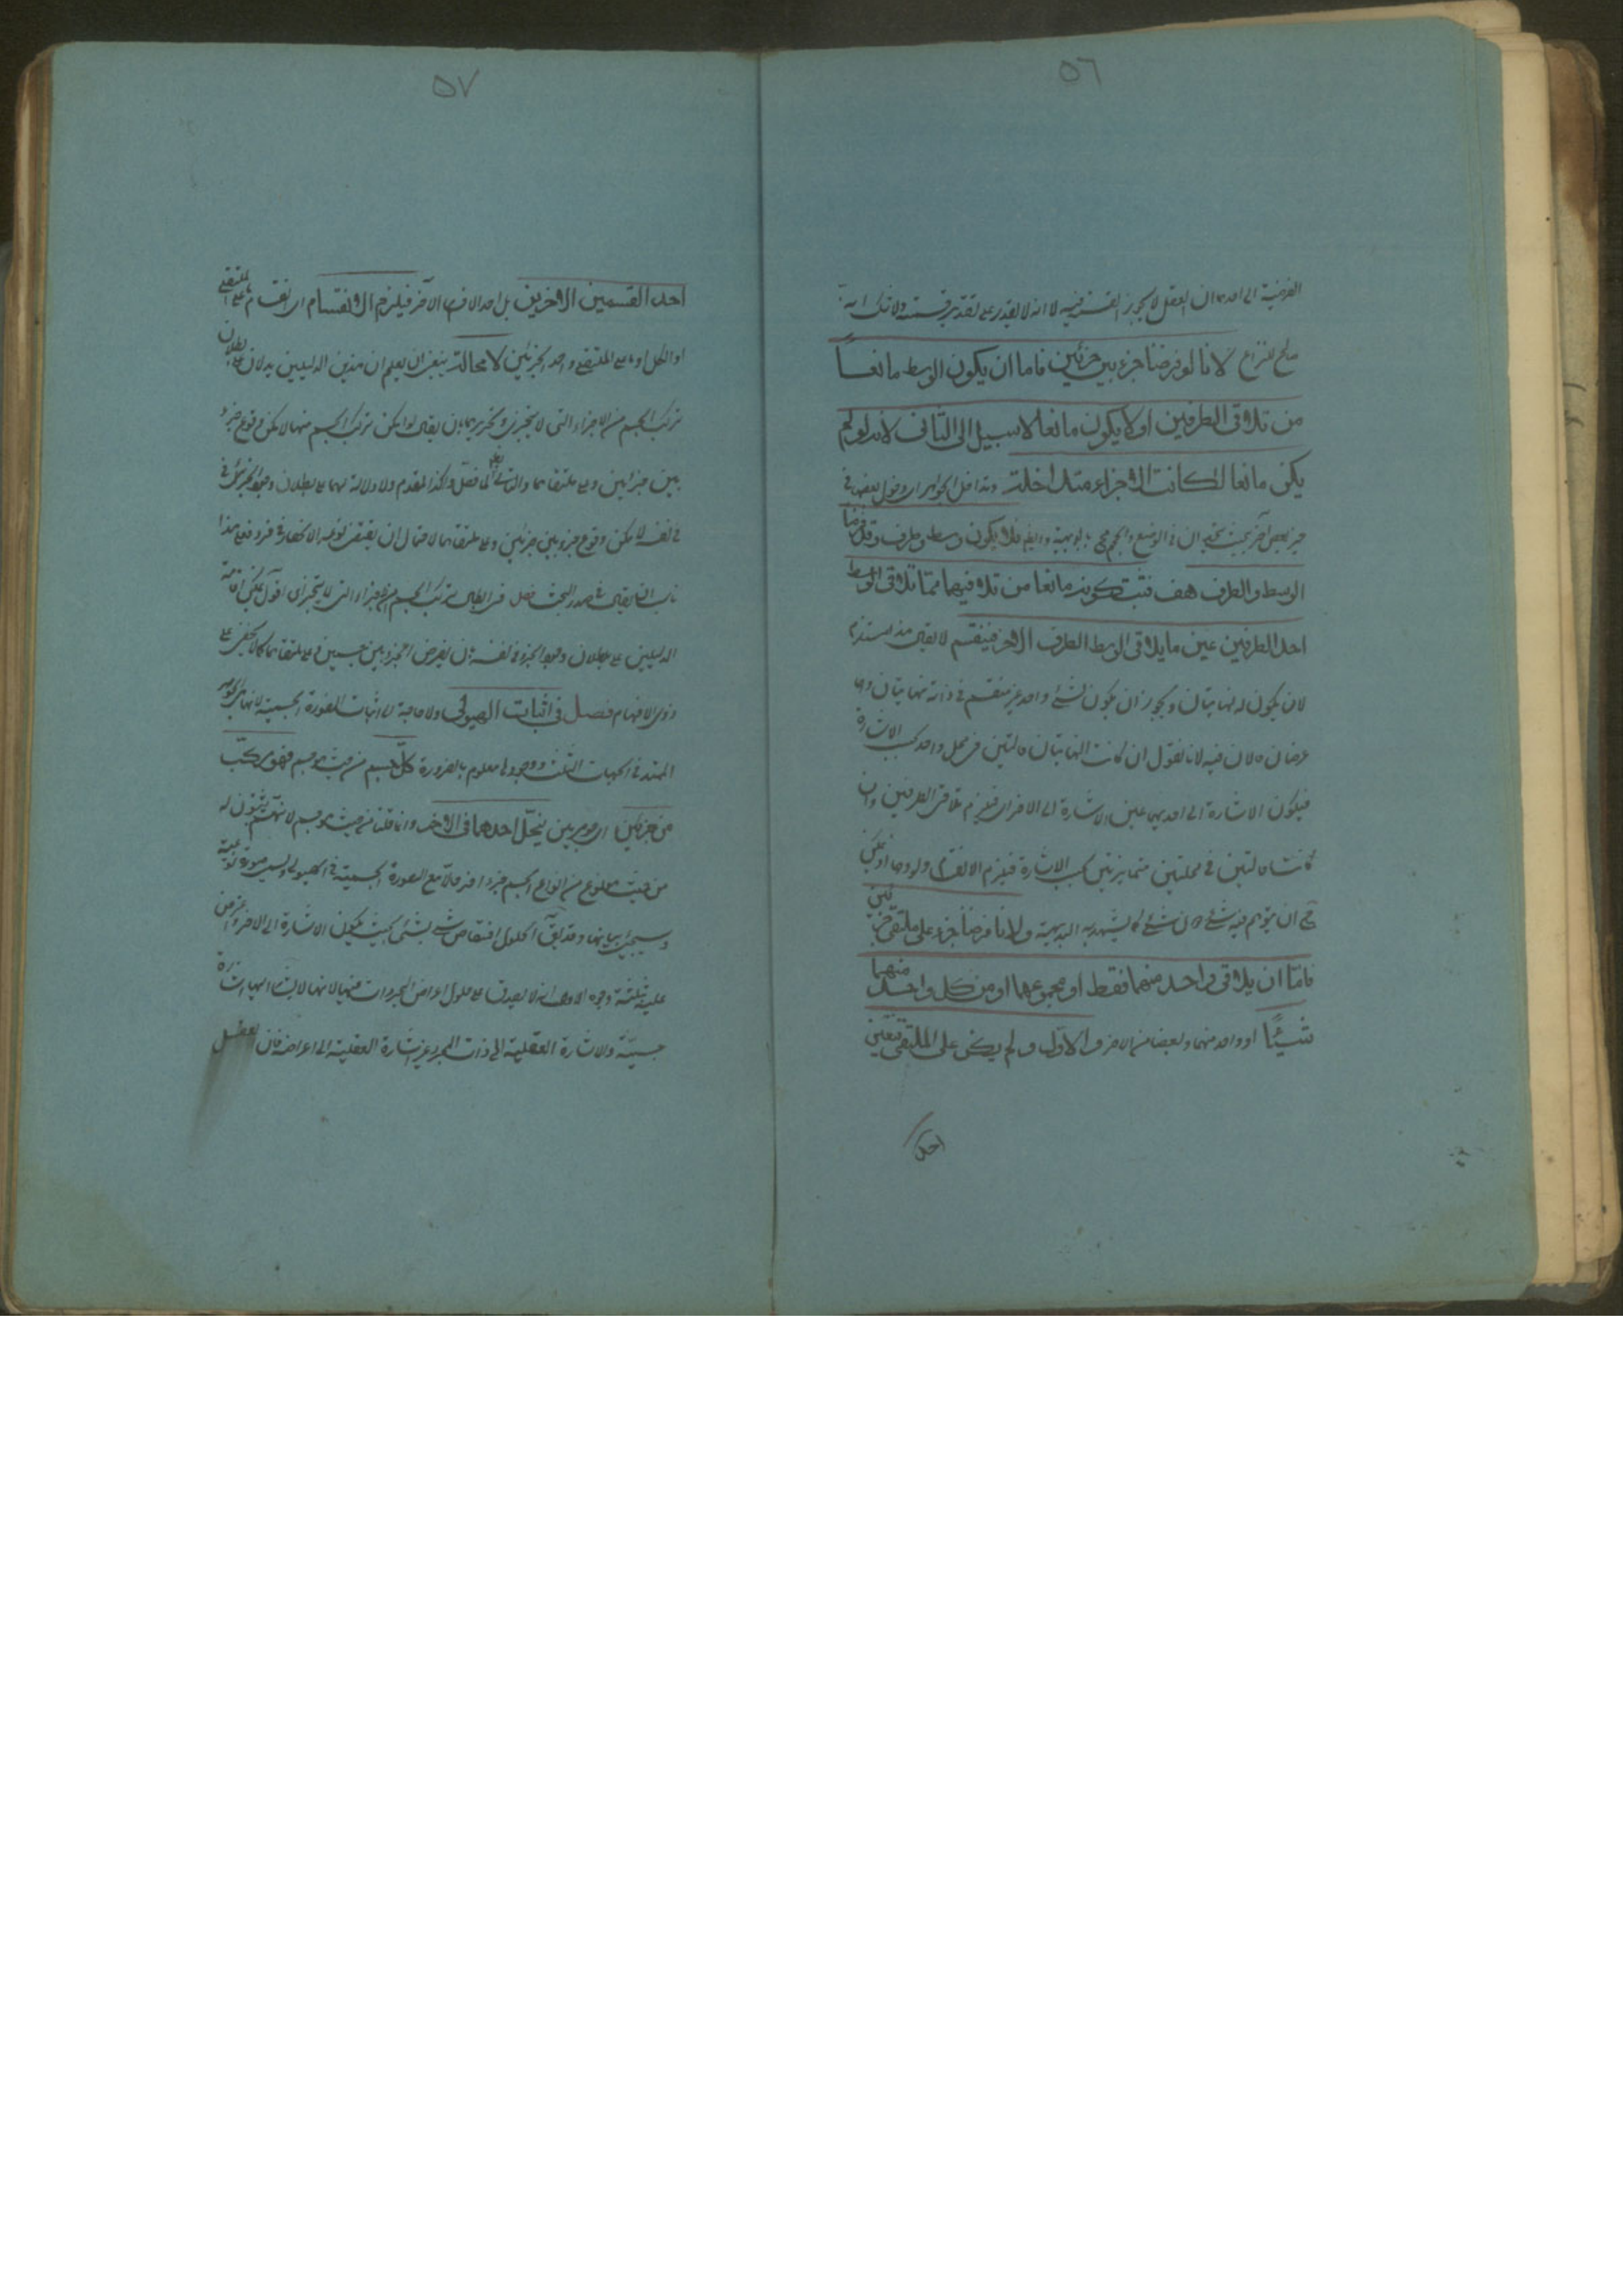 ٥٦
الفرضية الى احدهما ان العقل لا يجوز القسمة فيه لا انه لا يقدر على تقدير قسمته ولا شك انه
صالح للنزاع لانا لو فرضنا جزء بين جزئين فاما ان يكون الوسط مانعا
من تلاقى الطرفين او لا يكون مانعا لا سبيل الى الثانى لانه لو لم
يكن مانعا لكانت الاجزاء متداخلة وتداخل الجواهر اى دخول بعضها فى
حيز بعض آخر بحيث يتحدان فى الوضع والحجم مح بالبديهة وايضا فلا يكون وسط وطرف وقد فرضنا
الوسط والطرف هف فثبت كونه مانعا من تلاقيهما فما به تلاقى الوسط
احد الطرفين عين ما يلاقى الوسط الطرف الاخر فينقسم لا يقال هذا يستلزم
لان يكون له نهايتان ويجوز ان يكون لشئ واحد غير منقسم فى ذاته نهايتان هما
عرضان حالان فيه لانا نقول ان كانت النهايتان حالتين فى محل واحد بحسب الاشارة
فيكون الاشارة الى احديهما عين الاشارة الى الاخرى فيلزم تلاقى الطرفين وان
كانتا حالتين فى محلين متمايزين بحسب الاشارة فيلزم الانقسام ولو وهما اذ يمكن
ح ان يتوهم فيه شئ دون شئ كما يشهد به البديهة ولانا فرضنا جزء على ملتقى جزئين
فاما ان يلاقى واحد منهما فقط او مجموعهما او من كل واحد منهما
شيئا او واحد منهما وبعضا من الاخر والاول لم يكن على الملتقى فتعين
احد
٥٧
احد القسمين الاخرين بل احد الاقسام الاخر فيلزم الانقسام اى انقسام ما على الملتقى
او الكل او ما على الملتقى واحد الجزئين لا محالة ينبغى ان يعلم ان هذين الدليلين يدلان على بطلان
تركب الجسم من الاجزاء التى لا يتجزى وتحريرهما بان يقال لو امكن تركب الجسم منها لامكن وقوع جزء
بين جزئين وعلى ملتقاهما والتالى بط كما فصل وكذا المقدم ولا دلالة لهما على بطلان وجود الجزء
فى نفسه لا يمكن وقوع جزء بين جزئين وعلى ملتقاهما لاحتمال ان يقتضى نوعه الانحصار فى فرد فعلى هذا
ناسب ان يقال فى صدر البحث فصل فى ابطال تركب الجسم من الاجزاء التى لا يتجزى اقول يمكن اقامة
الدليلين على بطلان وجود الجزء فى نفسه بان يفرض الجزء بين جسمين وعلى ملتقاهما كما لا يخفى على
ذوى الافهام فصل فى اثبات الهيولى ولا حاجة الى اثبات الصورة الجسمية لانها هى الجوهر
الممتد فى الجهات الثلث ووجودها معلوم بالضرورة كل جسم من حيث هو جسم فهو مركب
من جزئين اى جوهرين يحل احدهما فى الاخر وانما قلنا من حيث هو جسم لانهم يثبتون له
من حيث هو نوع من انواع الجسم جزء اخر حالا مع الصورة الجسمية فى الهيولى ويسمى صورة نوعية
وسيجئ بيانها وقد يق الحلول اختصاص شئ بشئ بحيث يكون الاشارة الى الاخر واعترض
عليه بثلثة وجوه الاول انه لا يصدق على حلول اعراض المجردات فيها لانها لا يشار اليها اشارة
حسية والاشارة العقلية الى ذات المجرد غير الاشارة العقلية الى اعراضه فان العقل